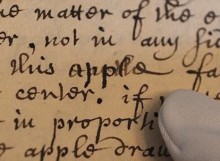 e matter of the e
er, not in any fi
this apple fa
center. if
in proporti
e apple draw